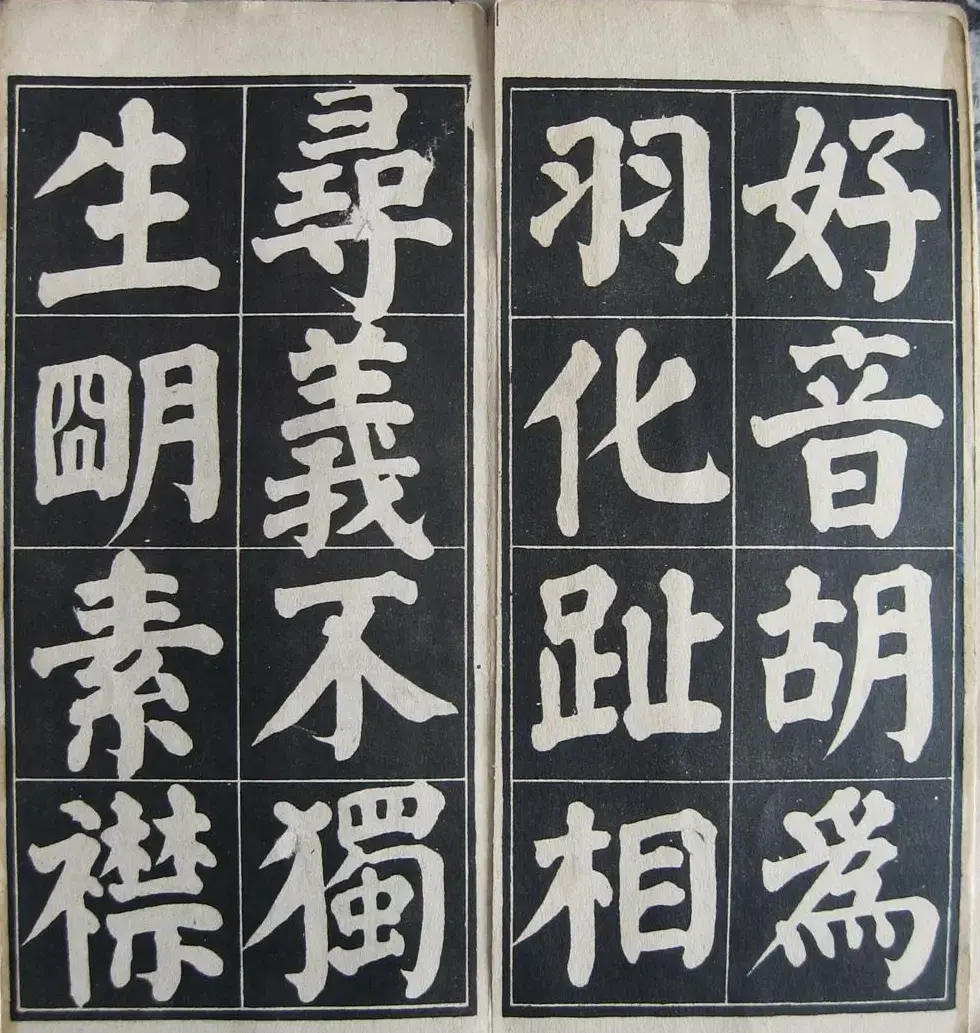 好音胡爲
羽化趾相
尋義不獨
生朙素襟